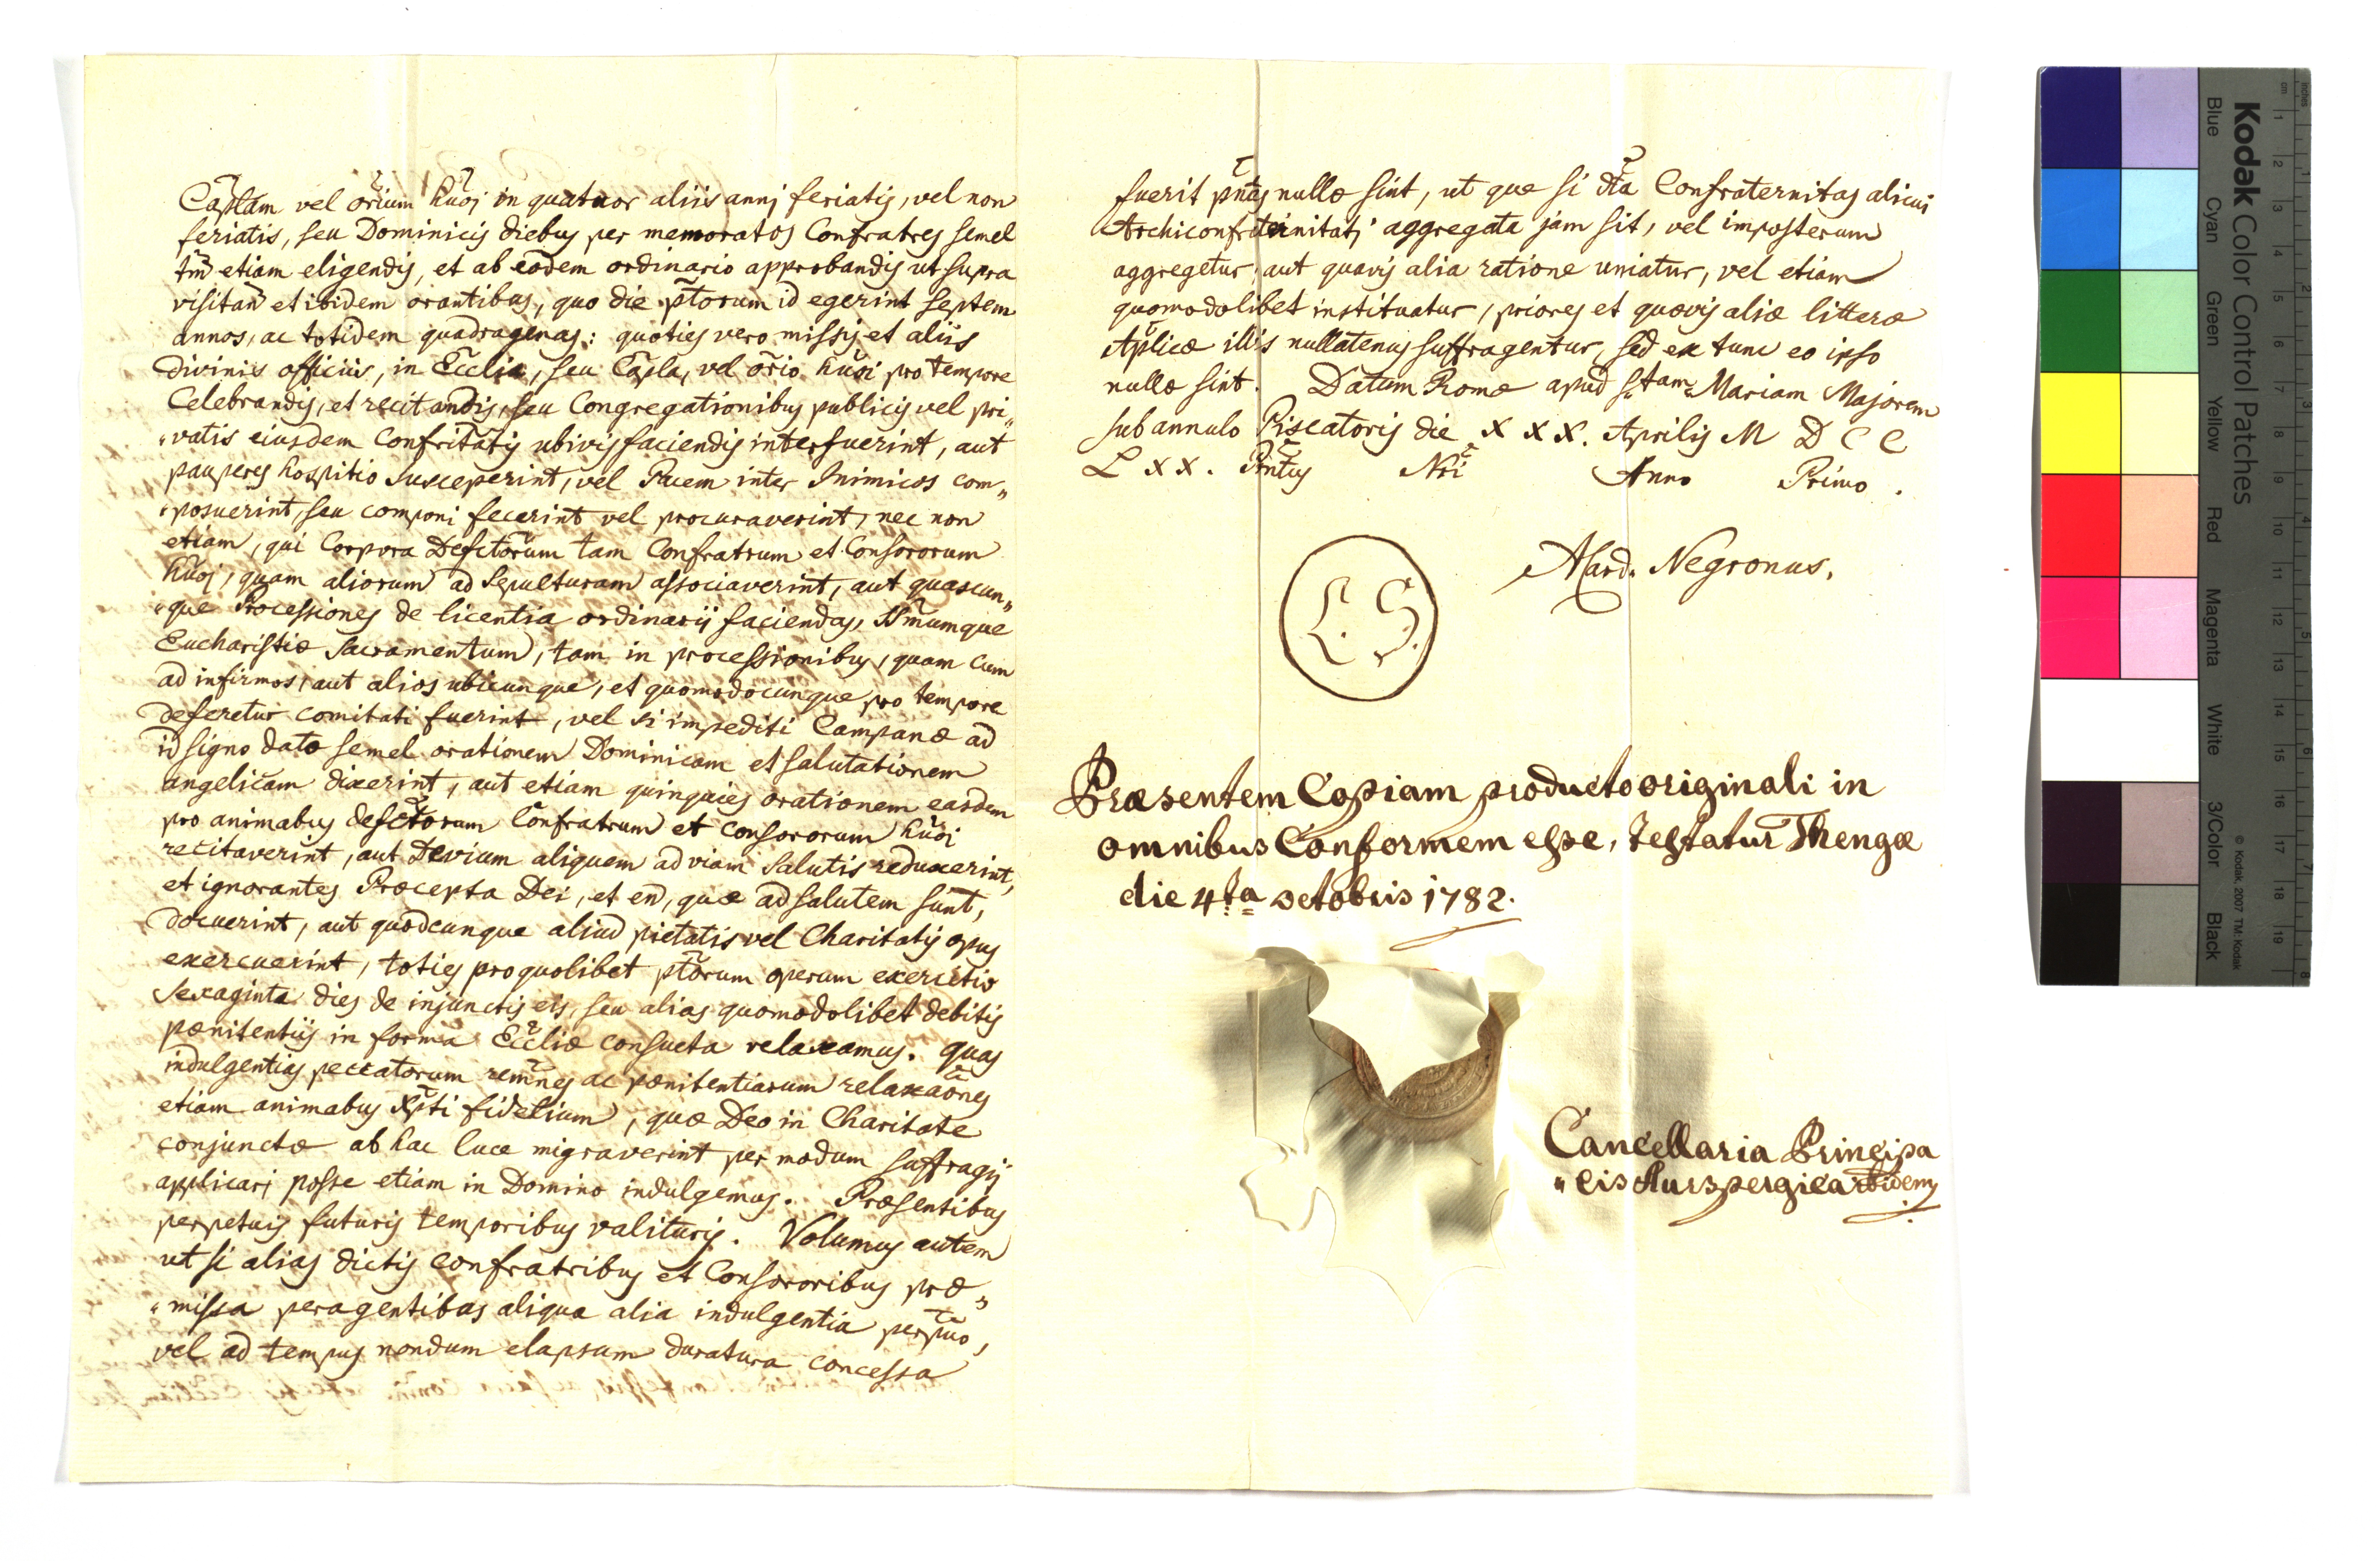 Caplam vel orium huoj in quatuor aliis annj feriatis, vel non
feriatis, seu Dominicis diebus per memoratos Confratres semel
tm̃ etiam eligendis, et ab eodem ordinario approbandis ut supra
visitañ et ibidem orantibus, quo die p̃torum id egerint septem
annos, ac totidem quadragenas: quoties vero missis et aliis
Divinis officiis, in Ecclia, seu Capla, vel orio huoi pro tempore
Celebrandis, et recitandis, seu Congregationibus publicis vel pri„
„vatis eiusdem Confritatis ubivis faciendis interfuerint, aut
pauperes hospitio susceperint, vel Pacem inter Inimicos com„
„posuerint, seu componi fecerint vel procuraverint, nec non
etiam, qui Corpora Defctorum tam Confratrum et Consororum
huoj, quam aliorum ad Sepulturam associaverint, aut quascun„
„que Processiones de licentia ordinarij faciendas, Ssmumque
Eucharistiæ Sacramentum, tam in processionibus, quam cum
ad infirmos, aut alios ubicunque, et quomodocunque pro tempore
deferetur comitati fuerint, vel si impediti Campanæ ad
id signo dato semel orationem Dominicam et salutationem
angelicam dixerint, aut etiam quinquies orationem easdem
pro animabus defctorum Confratrum et consororum huoi
recitaverint, aut Devium aliquem ad viam Salutis reduxerint,
et ignorantes Præcepta Dei, et ea, quæ ad salutem sunt,
docuerint, aut quodcunque aliud pietatis vel Charitatis opus
exercuerint, toties pro quolibet p̃torum operum exercitio
Sexaginta dies de injunctis eis, seu alias quomodolibet debitis
pænitentiis in forma Eccliæ consueta relaxamus. Quas
indulgentias peccatorum remnes ac pænitentiarum relaxaones
etiam animabus Xpti fidelium, quæ Deo in Charitate
conjunctæ ab hac luce migraverint per modum suffragij
applicari posse etiam in Domino indulgemus. Præsentibus
perpetuis futuris temporibus valituris. Volumus autem
ut si alias dictis confratribus et Consororibus præ„
„missa peragentibus aliqua alia indulgentia perpuo,
vel ad tempus nondum elapsum duratura concessa
fuerit pñtes nullæ sint, ut que si dta Confraternitas alicui
Archiconfraternitati aggregata jam sit, vel imposterum
aggregetur, aut quavis alia ratione uniatur, vel etiam
quomodolibet instituatur, priores et quævis aliæ litteræ
Aplicæ illis nullatenus suffragentur, sed ex tunc eo ipso
nullæ sint. Datum Romæ apud S:tam Mariam Majorem
sub annulo Piscatoris die XXX. Aprilis M D C C
L X X. Pntus Nri Anno Primo.
L. S.
A Card. Negronus.
Præsentem Copiam producto originali in
omnibus Conformem esse, testatur Thengæ
die 4ta octobris 1782.
Cancellaria Principa
„lis Aurspergica ibidem